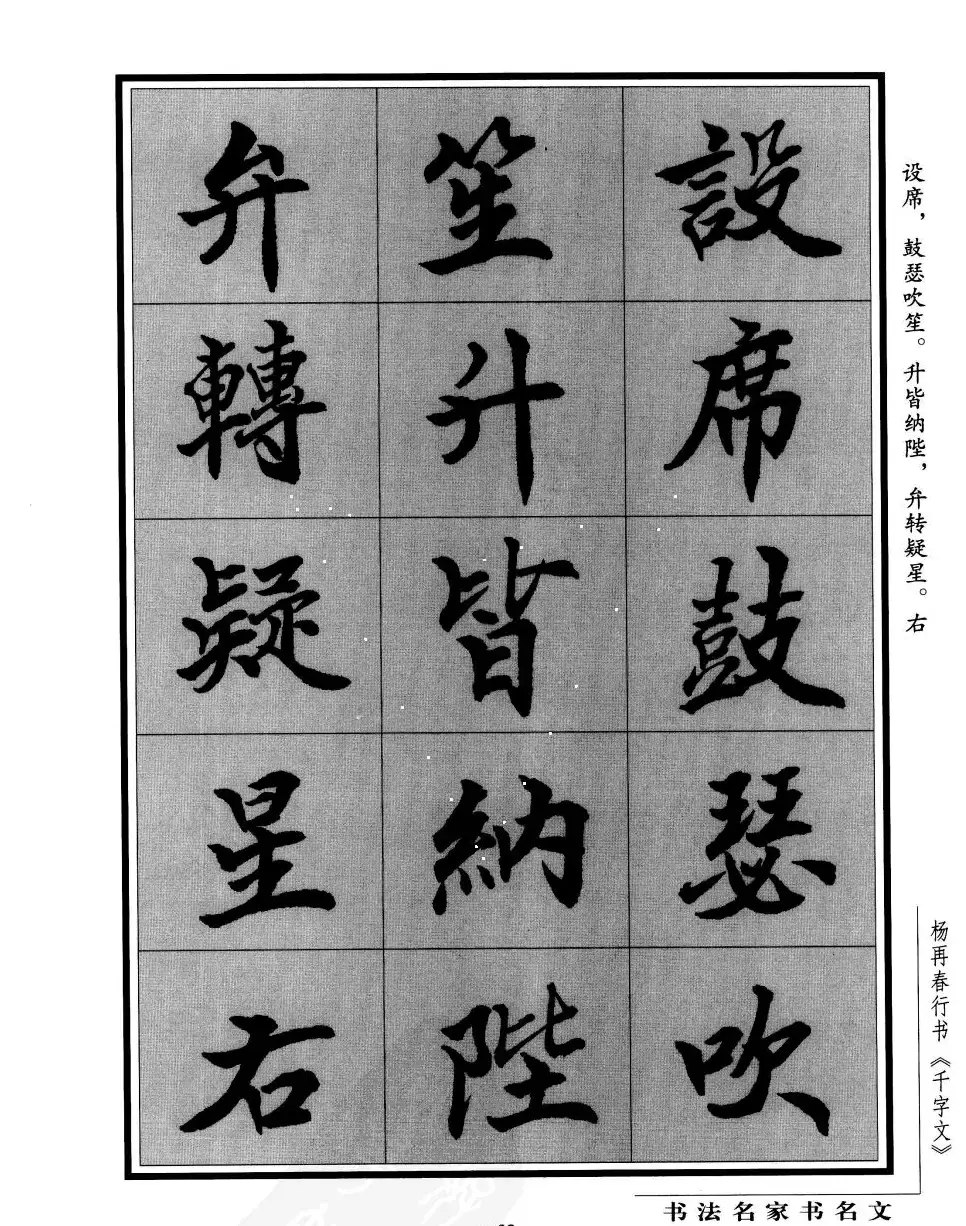 設席鼓瑟吹
笙升皆納陛
弁轉疑星右
设席，鼓瑟吹笙。升皆纳陛，弁转疑星。右
杨再春行书《千字文》
书法名家书名文